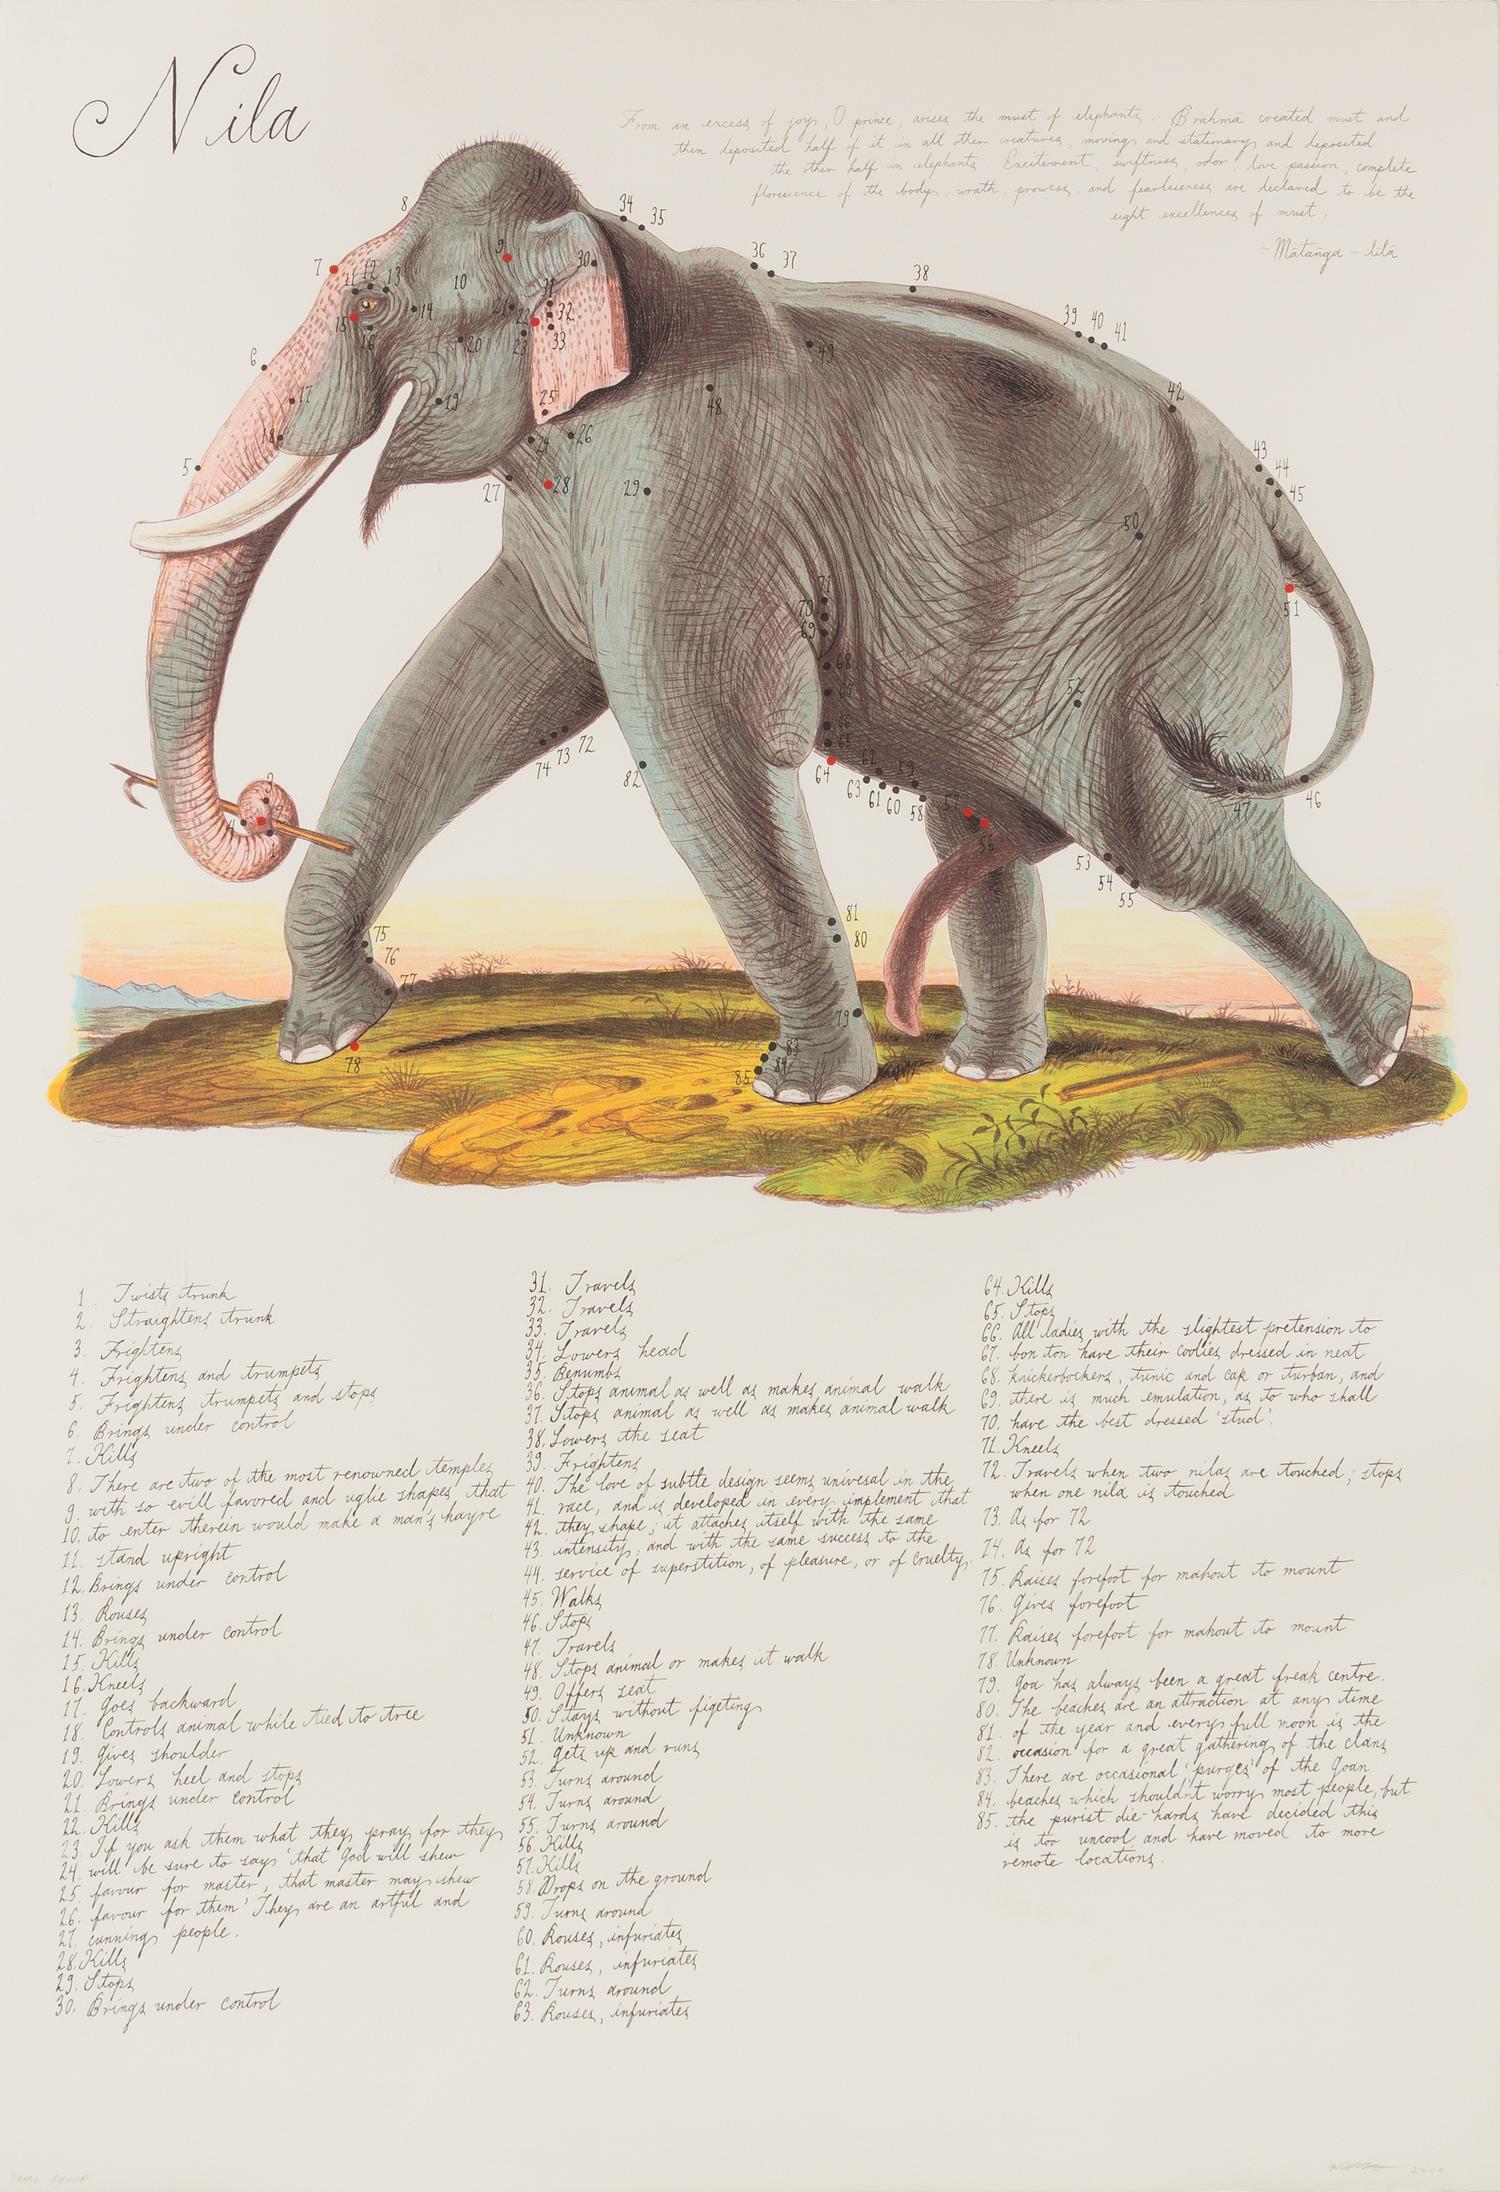 Nila
From an excess of joy, O prince, arises the must of elephants. Brahma created must and
then deposited half of it in all other creatures, moving and stationary and deposited
the other half in elephants. Excitement, swiftness, odor, love passion, complete
florescence of the body, wrath, prowess, and fearlessness are declared to be the
eight excellences of must.
- Mātanga - līlā
1. Twists trunk
2. Straightens trunk
3. Frightens
4. Frightens and trumpets
5. Frightens trumpets and stops
6. Brings under control
7. Kills
8. There are two of the most renowned temples
9. with so evill favored and uglie shapes, that
10. to enter therein would make a man's hayre
11. stand upright
12. Brings under control
13. Rouses
14. Brings under control
15. Kills
16. Kneels
17. Goes backward
18. Controls animal while tied to tree
19. Gives shoulder
20. Lowers heel and stops
21. Brings under control
22. Kills
23. If you ask them what they pray for they
24. will be sure to say 'that God will shew
25. favour for master, that master may shew
26. favour for them' They are an artful and
27. cunning people.
28. Kills
29. Stops
30. Brings under control
31. Travels
32. Travels
33. Travels
34. Lowers head
35. Benumbs
36. Stops animal as well as makes animal walk
37. Stops animal as well as makes animal walk
38. Lowers the seat
39. Frightens
40. The love of subtle design seems univesal in the
41. race, and is developed in every implement that
42. they shape; it attaches itself with the same
43. intensity, and with the same success to the
44. service of superstition, of pleasure, or of cruelty.
45. Walks
46. Stops
47. Travels
48. Stops animal or makes it walk
49. Offers seat
50. Stays without figeting
51. Unknown
52. Gets up and runs
53. Turns around
54. Turns around
55. Turns around
56. Kills
57. Kills
58. Drops on the ground
59. Turns around
60. Rouses, infuriates
61. Rouses, infuriates
62. Turns around
63. Rouses, infuriates
64. Kills
65. Stops
66. All ladies with the slightest pretension to
67. bon ton have their coolies dressed in neat
68. knickerbockers, tunic and cap or turban, and
69. there is much emulation, as to who shall
70. have the best dressed 'stud'.
71. Kneels
72. Travels when two nilas are touched; stops
when one nila is touched
73. As for 72
74. As for 72
75. Raises forefoot for mahout to mount
76. Gives forefoot
77. Raises forefoot for mahout to mount
78. Unknown
79. Goa has always been a great freak centre.
80. The beaches are an attraction at any time
81. of the year and every full moon is the
82. occasion for a great gathering of the clans
83. There are occasional 'purges' of the Goan
84. beaches which shouldn't worry most people, but
85. the purist die-hards have decided this
is too uncool and have moved to more
remote locations.